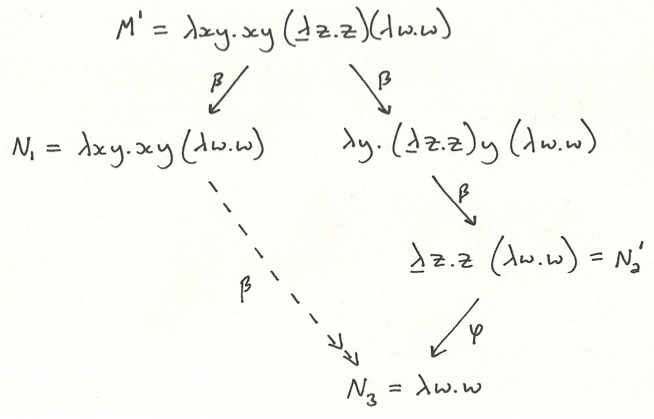 M' = λxy.xy (λ̲z.z)(λw.w)
β β
N₁ = λxy.xy (λw.w) λy. (λ̲z.z)y (λw.w)
β
λ̲z.z (λw.w) = N₂'
β φ
N₃ = λw.w